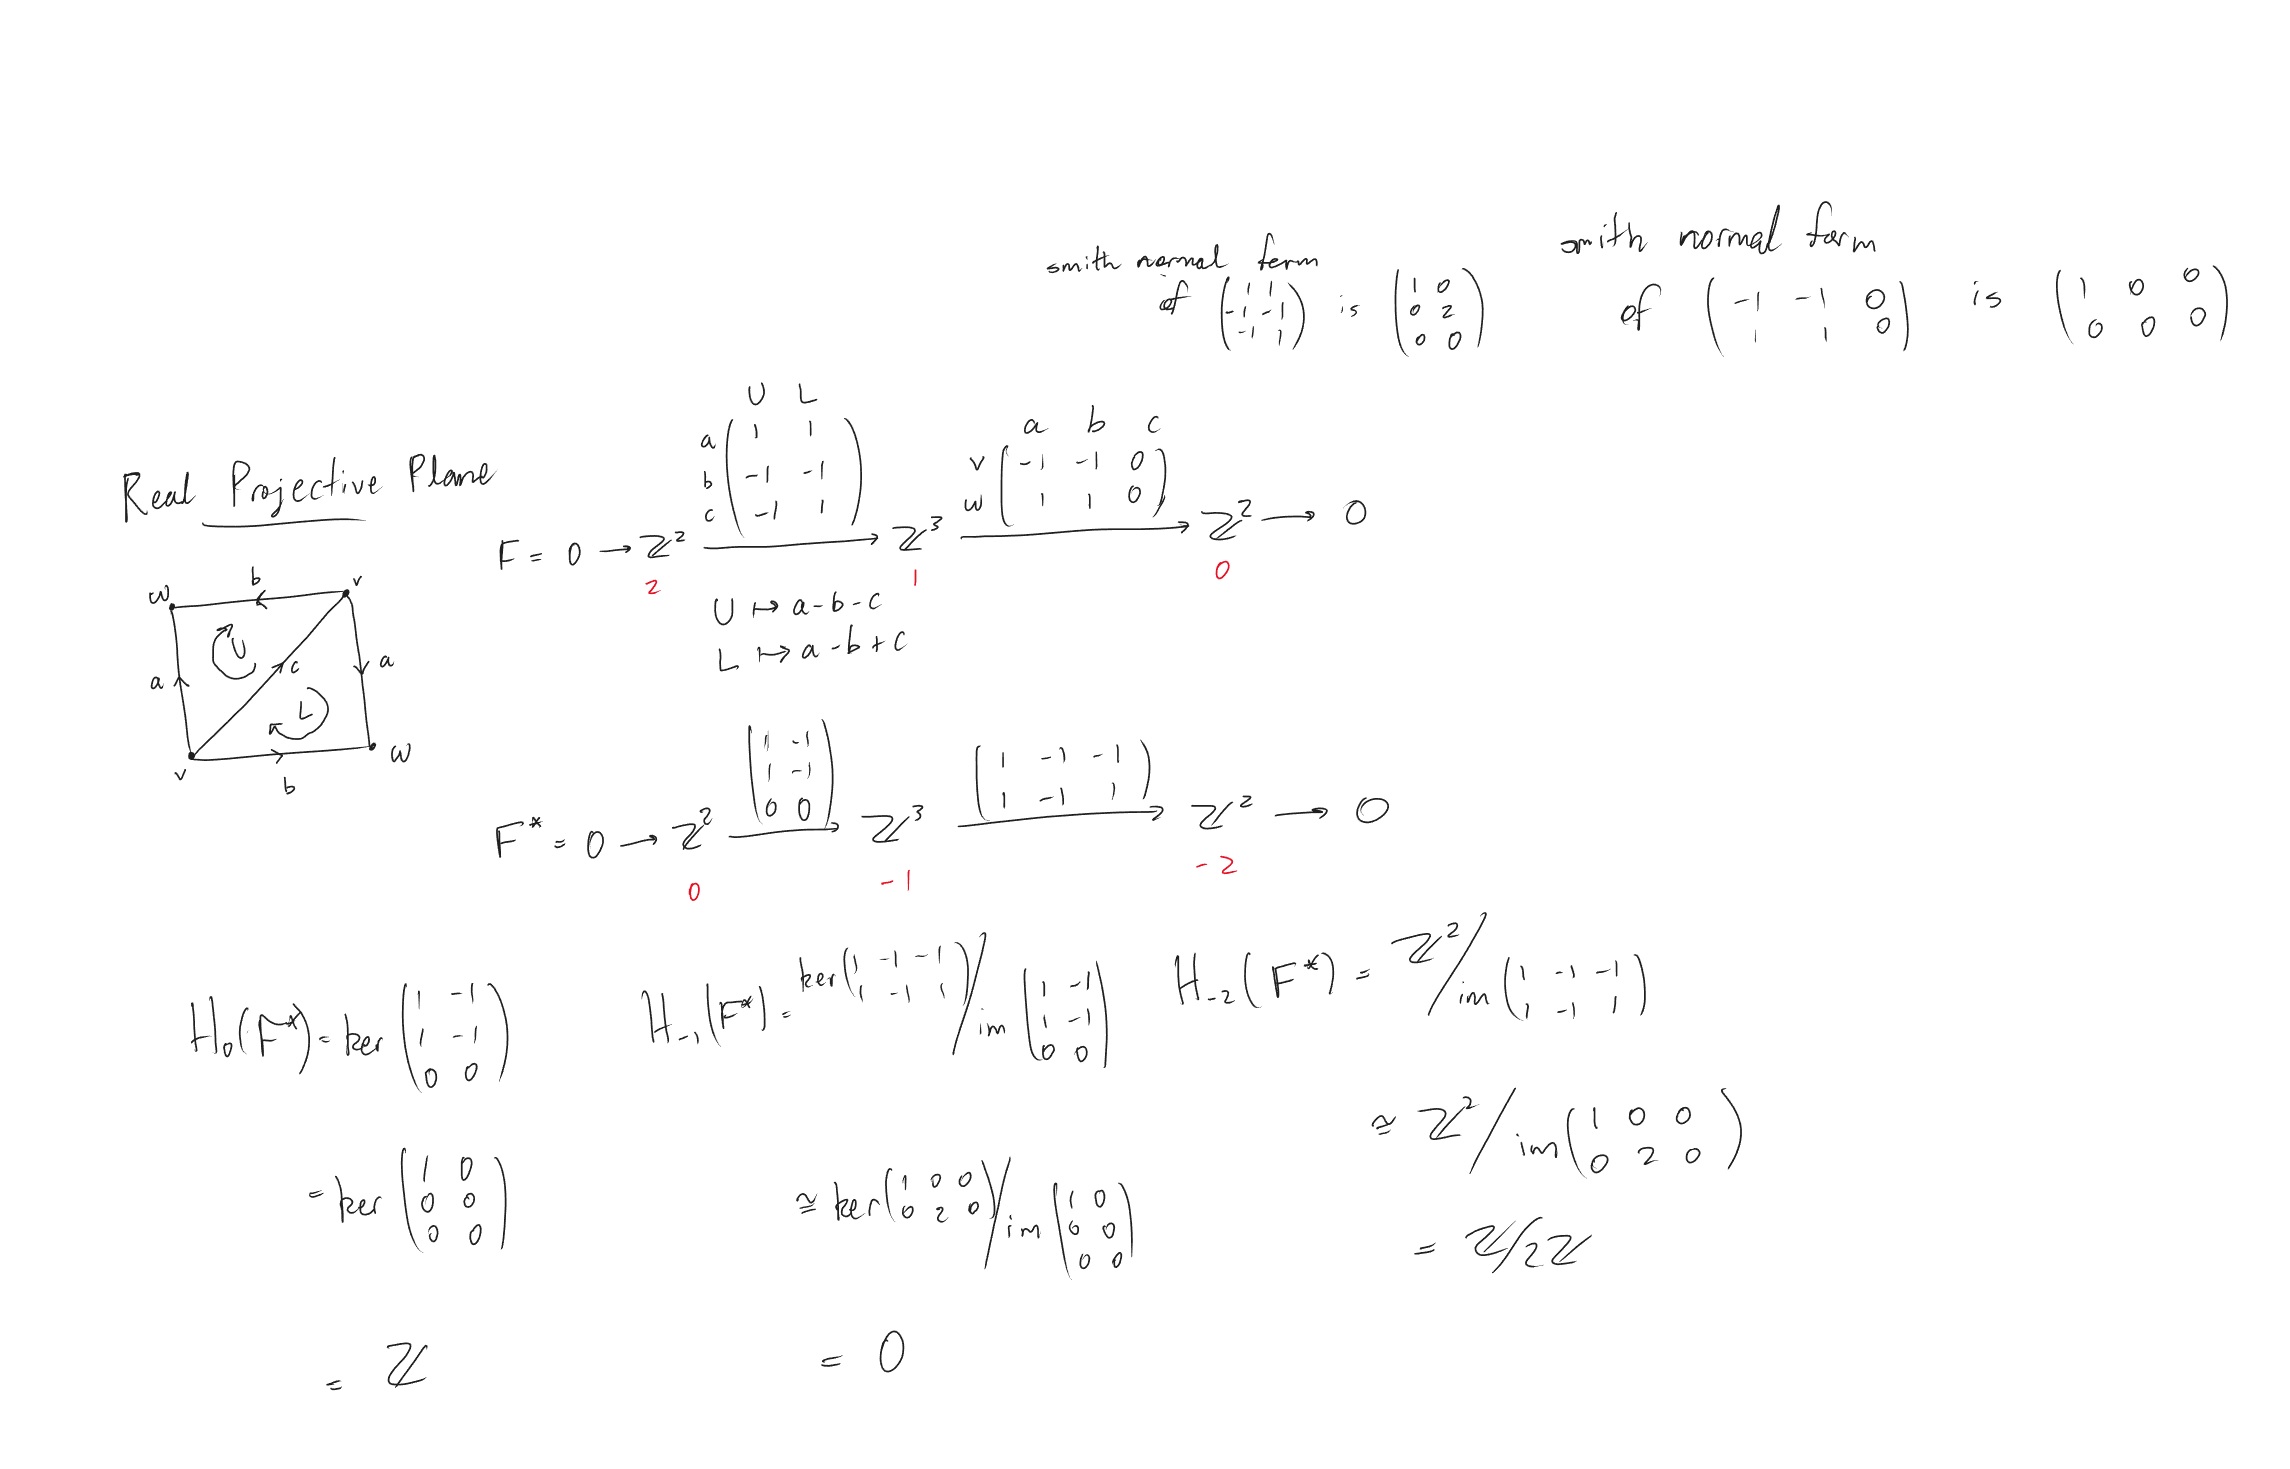 smith normal form
of ( 1 1 ; -1 -1 ; -1 1 ) is ( 1 0 ; 0 2 ; 0 0 )
smith normal form
of ( -1 -1 0 ; 1 1 0 ) is ( 1 0 0 ; 0 0 0 )
Real Projective Plane
w b v
a U c a
L
v b w
U L
a ( 1 1
b -1 -1
c -1 1 )
a b c
v ( -1 -1 0
w 1 1 0 )
F = 0 → ℤ² → ℤ³ → ℤ² → 0
2 1 0
U ↦ a-b-c
L ↦ a-b+c
( 1 -1 ; 1 -1 ; 0 0 ) ( 1 -1 -1 ; 1 -1 1 )
F* = 0 → ℤ² → ℤ³ → ℤ² → 0
0 -1 -2
H₀(F*) = ker ( 1 -1 ; 1 -1 ; 0 0 )
= ker ( 1 0 ; 0 0 ; 0 0 )
= ℤ
H₋₁(F*) = ker ( 1 -1 -1 ; 1 -1 1 ) / im ( 1 -1 ; 1 -1 ; 0 0 )
≅ ker ( 1 0 0 ; 0 2 0 ) / im ( 1 0 ; 0 0 ; 0 0 )
= 0
H₋₂(F*) = ℤ² / im ( 1 -1 -1 ; 1 -1 1 )
≅ ℤ² / im ( 1 0 0 ; 0 2 0 )
= ℤ/2ℤ